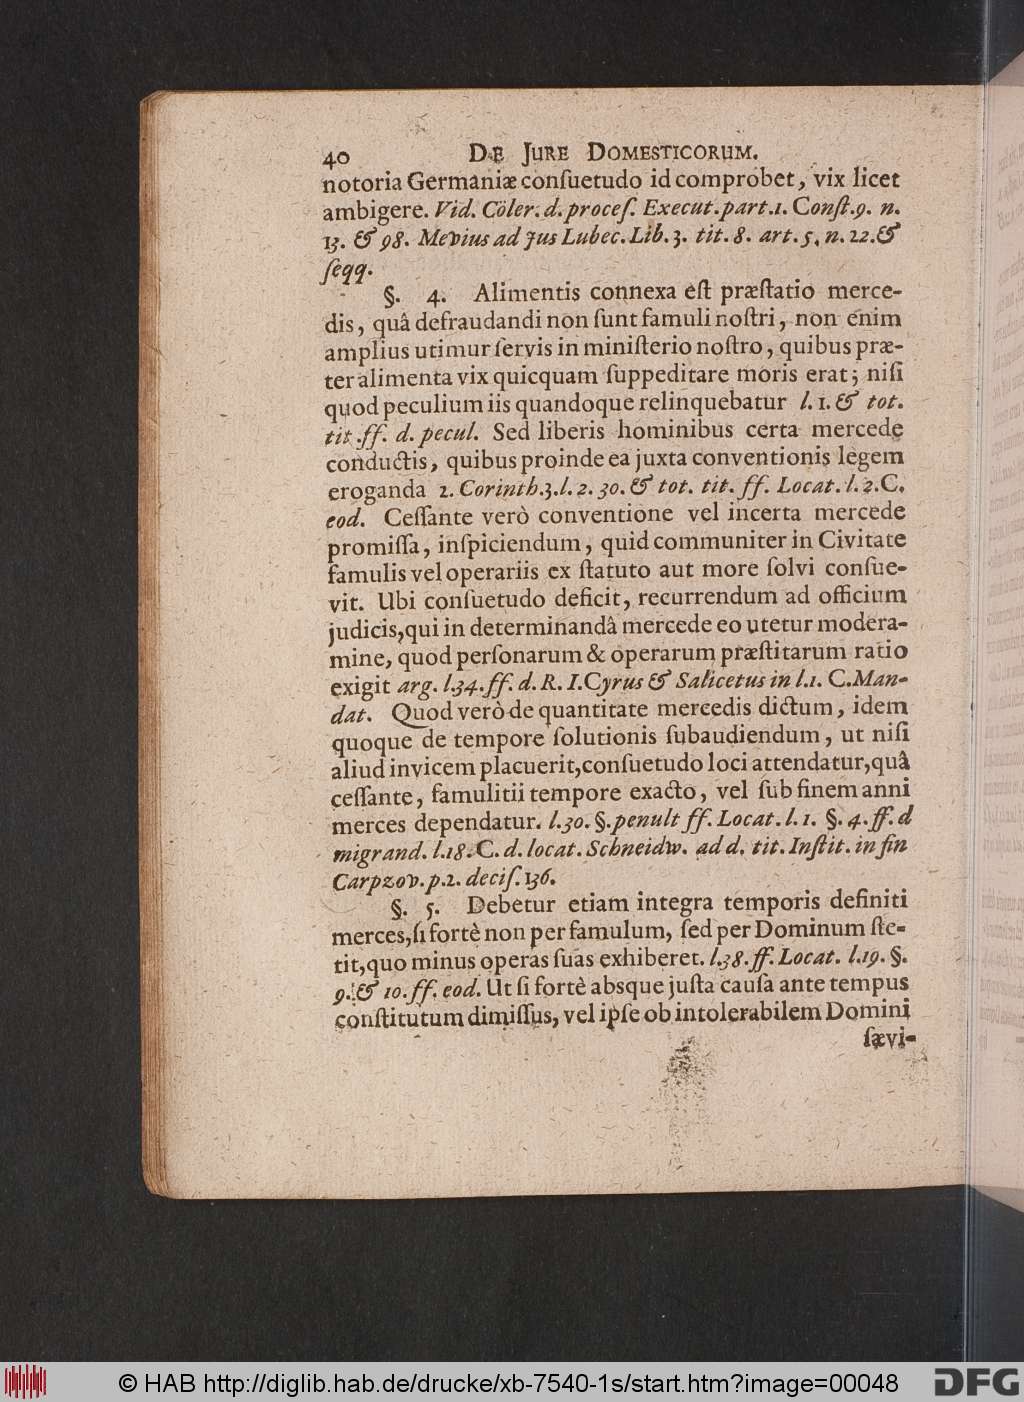 40 DE JURE DOMESTICORUM.
notoria Germaniæ conſuetudo id comprobet, vix licet
ambigere. Vid. Cöler. d. proceſ. Execut. part. 1. Conſt. 9. n.
13. & 98. Mevius ad Jus Lubec. Lib. 3. tit. 8. art. 5. n. 22. &
ſeqq.
§. 4. Alimentis connexa eſt præſtatio merce-
dis, quâ defraudandi non ſunt famuli noſtri, non enim
amplius utimur ſervis in miniſterio noſtro, quibus præ-
ter alimenta vix quicquam ſuppeditare moris erat; niſi
quod peculium iis quandoque relinquebatur l. 1. & tot.
tit. ff. d. pecul. Sed liberis hominibus certa mercede
conductis, quibus proinde ea juxta conventionis legem
eroganda 2. Corinth. 3. l. 2. 30. & tot. tit. ff. Locat. l. 2. C.
eod. Ceſſante verò conventione vel incerta mercede
promiſſa, inſpiciendum, quid communiter in Civitate
famulis vel operariis ex ſtatuto aut more ſolvi conſue-
vit. Ubi conſuetudo deficit, recurrendum ad officium
judicis, qui in determinandâ mercede eo utetur modera-
mine, quod perſonarum & operarum præſtitarum ratio
exigit arg. l. 34. ff. d. R. I. Cyrus & Salicetus in l. 1. C. Man-
dat. Quod verò de quantitate mercedis dictum, idem
quoque de tempore ſolutionis ſubaudiendum, ut niſi
aliud invicem placuerit, conſuetudo loci attendatur, quâ
ceſſante, famulitii tempore exacto, vel ſub finem anni
merces dependatur. l. 30. §. penult ff. Locat. l. 1. §. 4. ff. d
migrand. l. 18. C. d. locat. Schneidw. ad d. tit. Inſtit. in fin
Carpzov. p. 2. deciſ. 136.
§. 5. Debetur etiam integra temporis definiti
merces, ſi fortè non per famulum, ſed per Dominum ſte-
tit, quo minus operas ſuas exhiberet. l. 38. ff. Locat. l. 19. §.
9. & 10. ff. eod. Ut ſi fortè absque juſta cauſa ante tempus
conſtitutum dimiſſus, vel ipſe ob intolerabilem Domini
ſævi-
© HAB http://diglib.hab.de/drucke/xb-7540-1s/start.htm?image=00048
DFG